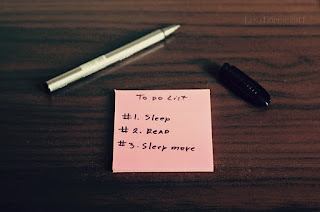 To do List
#1. Sleep
#2. READ
#3. Sleep more